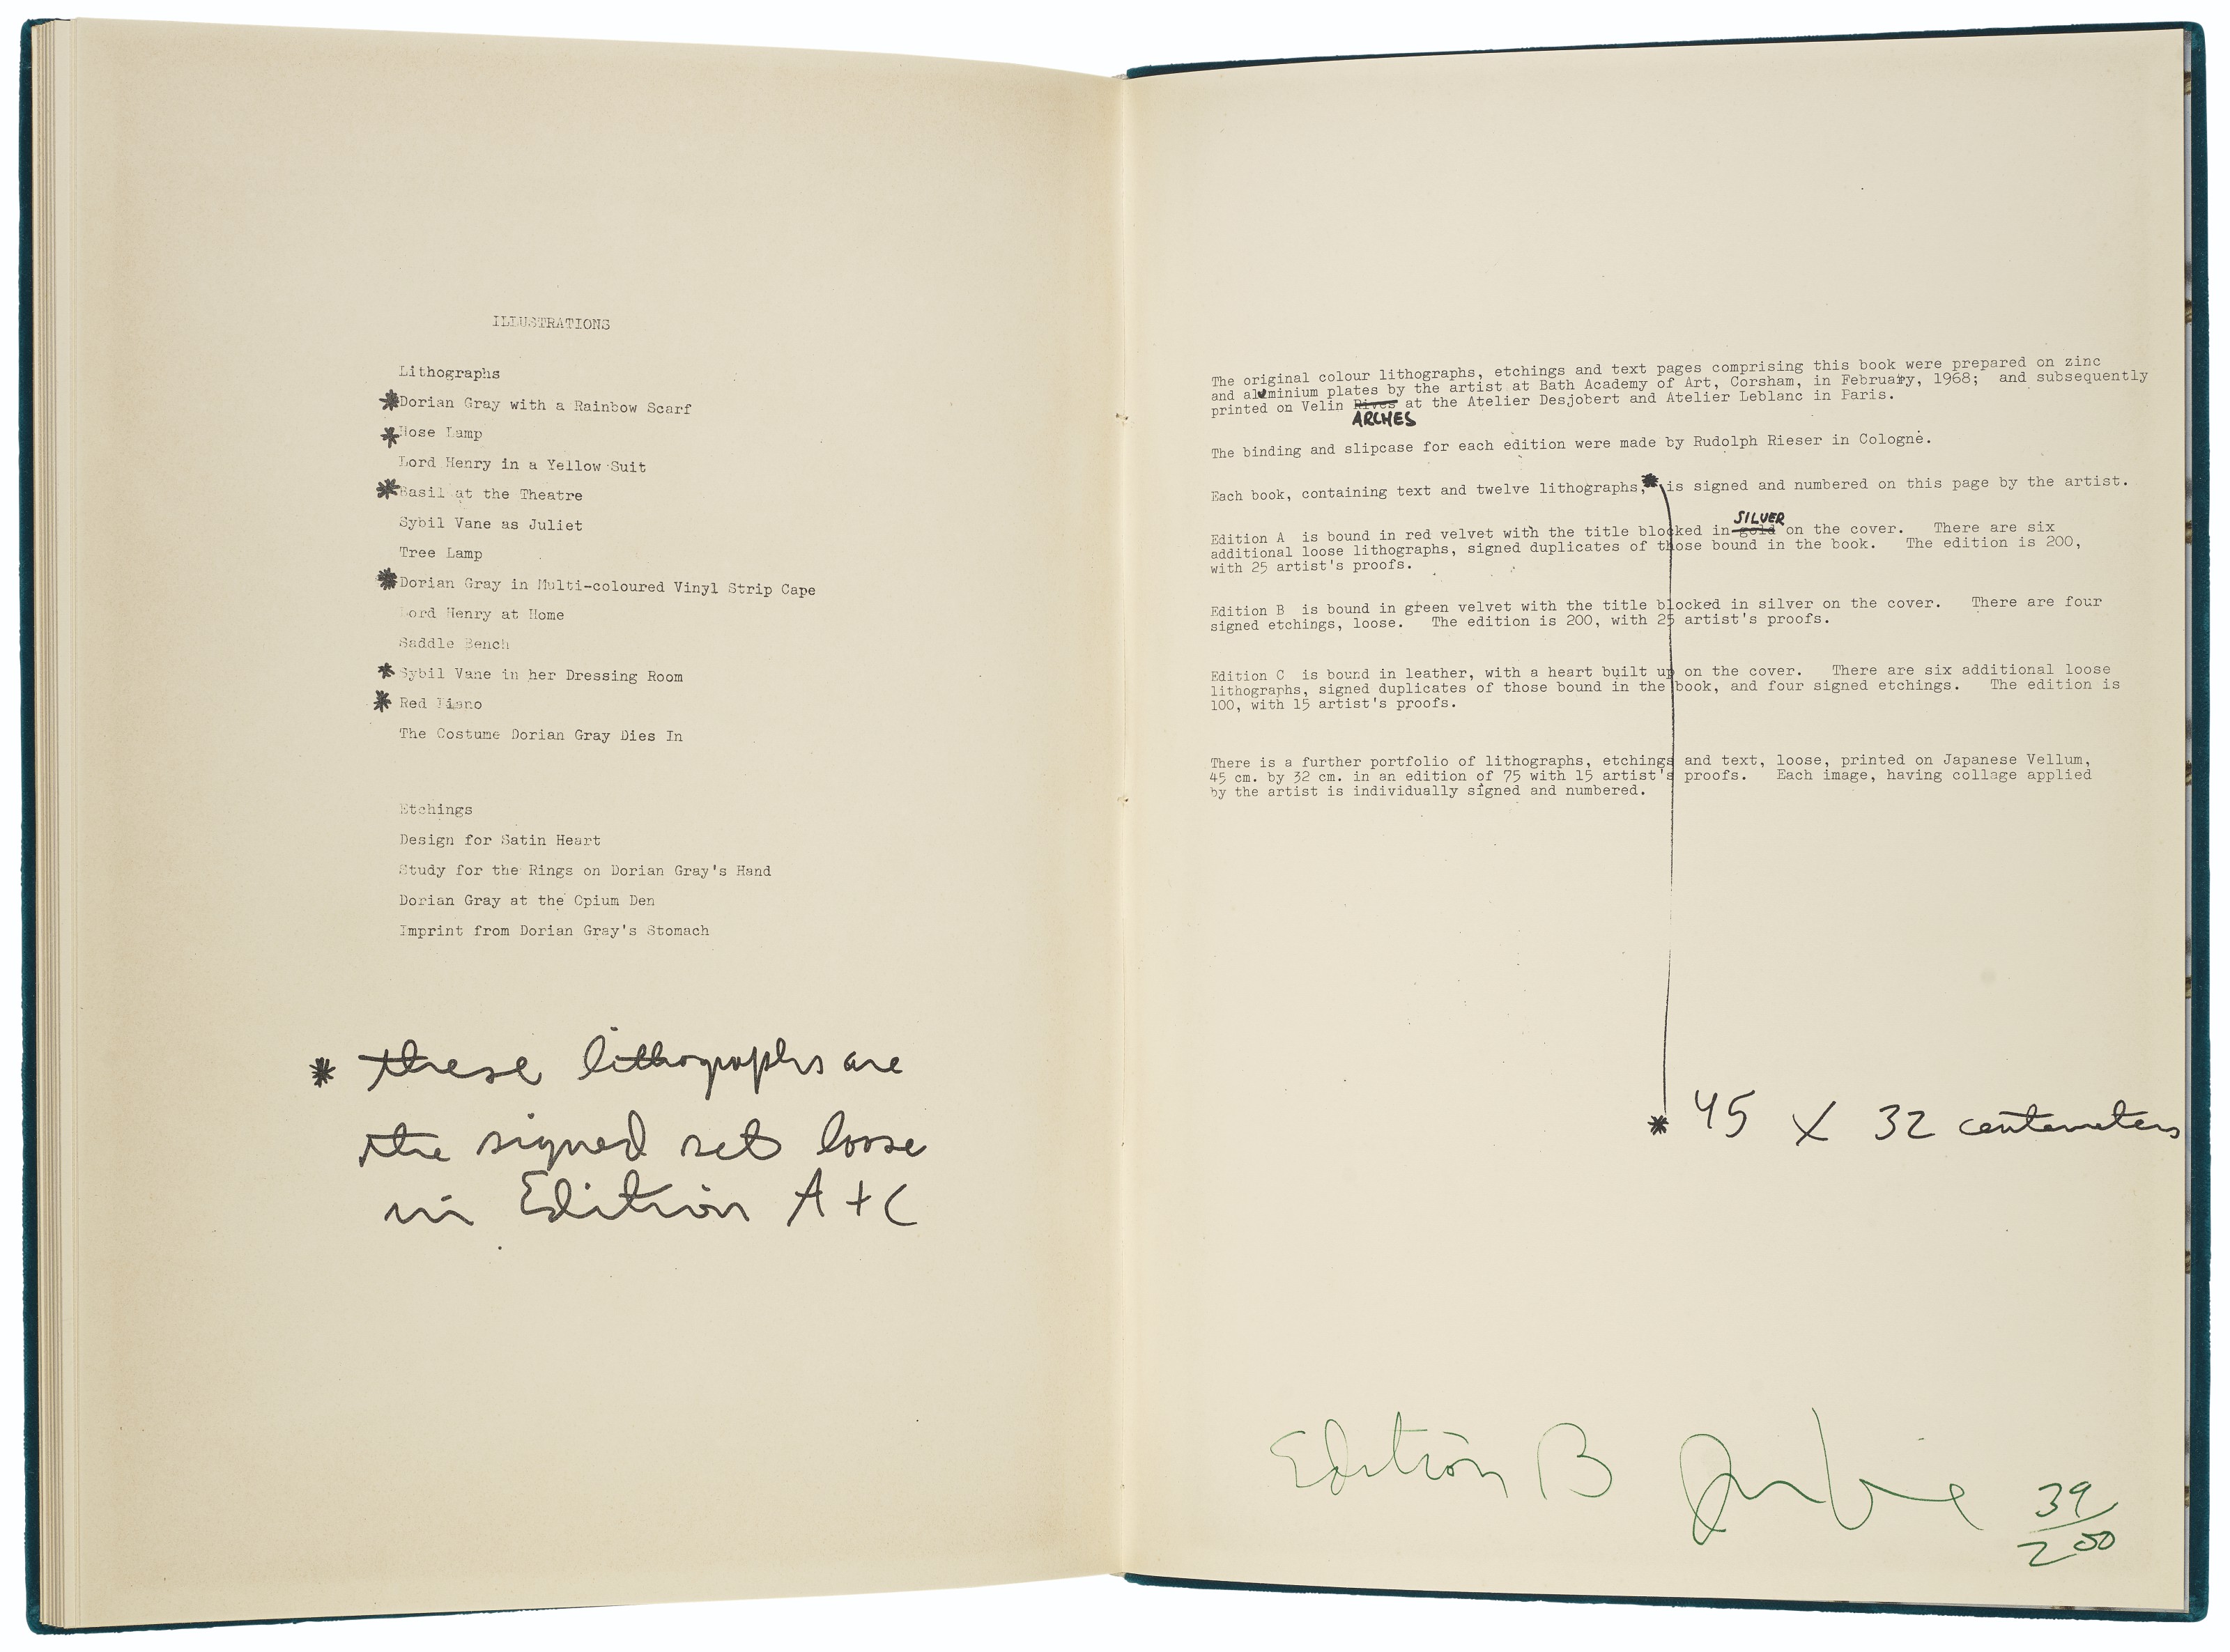 ILLUSTRATIONS
Lithographs
*Dorian Gray with a Rainbow Scarf
*Rose Lamp
Lord Henry in a Yellow Suit
*Basil at the Theatre
Sybil Vane as Juliet
Tree Lamp
*Dorian Gray in Multi-coloured Vinyl Strip Cape
Lord Henry at Home
Saddle Bench
*Sybil Vane in her Dressing Room
*Red Piano
The Costume Dorian Gray Dies In
Etchings
Design for Satin Heart
Study for the Rings on Dorian Gray's Hand
Dorian Gray at the Opium Den
Imprint from Dorian Gray's Stomach
* these lithographs are
the signed set loose
in Edition A + C
The original colour lithographs, etchings and text pages comprising this book were prepared on zinc
and aluminium plates by the artist at Bath Academy of Art, Corsham, in February, 1968; and subsequently
printed on Velin Rives at the Atelier Desjobert and Atelier Leblanc in Paris.
ARCHES
The binding and slipcase for each edition were made by Rudolph Rieser in Cologne.
Each book, containing text and twelve lithographs,* is signed and numbered on this page by the artist.
SILVER
Edition A is bound in red velvet with the title blocked in gold on the cover. There are six
additional loose lithographs, signed duplicates of those bound in the book. The edition is 200,
with 25 artist's proofs.
Edition B is bound in green velvet with the title blocked in silver on the cover. There are four
signed etchings, loose. The edition is 200, with 25 artist's proofs.
Edition C is bound in leather, with a heart built up on the cover. There are six additional loose
lithographs, signed duplicates of those bound in the book, and four signed etchings. The edition is
100, with 15 artist's proofs.
There is a further portfolio of lithographs, etchings and text, loose, printed on Japanese Vellum,
45 cm. by 32 cm. in an edition of 75 with 15 artist's proofs. Each image, having collage applied
by the artist is individually signed and numbered.
* 45 X 32 centemeters
Edition B Jim Dine 39
200